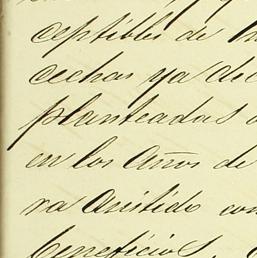 ceptibles de
cechas ya dec
planteadas
en los Años de
ra Asistido con
beneficios.